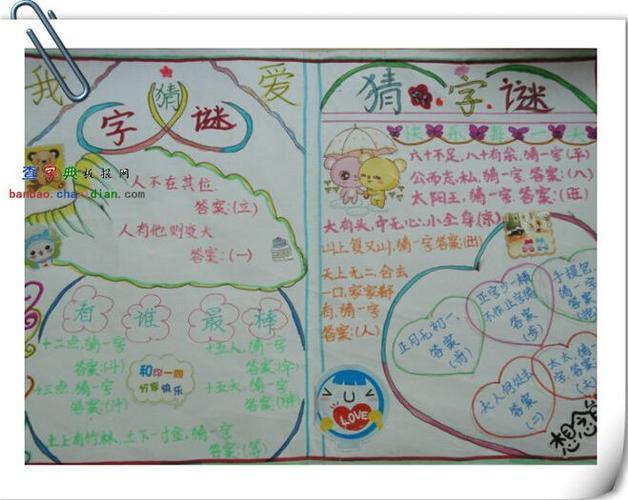 我爱
猜
字谜
查字典板报网
banbao.chazidian.com
人不在其位
答案:(立)
人有他则变大
答案:(一)
看谁最棒
十二点,猜一字
答案:(斗)
十三点,猜一字
答案:(汁)
和你一起
分享快乐
十五人,猜一字
答案:(伞)
十五天,猜一字
答案:(胖)
土上有竹林,土下一寸金,猜一字
答案:(等)
猜字谜
快乐每一天
六十不足,八十有余,猜一字(平)
公而忘私,猜一字 答案:(八)
太阳王,猜一字答案:(旺)
大有头,中无心,小全身(京)
山上复又山,猜一字答案:(出)
天上无二,合去
一口,家家都
有,猜一字
答案:(人)
LOVE
正月无初一,
答案:
(肯)
正字少一横
不作止字猜
答案:
(步)
手提包,
猜一字
答案:
(抱)
夫人何处去
答案
(二)
太太,猜一
字,答案: